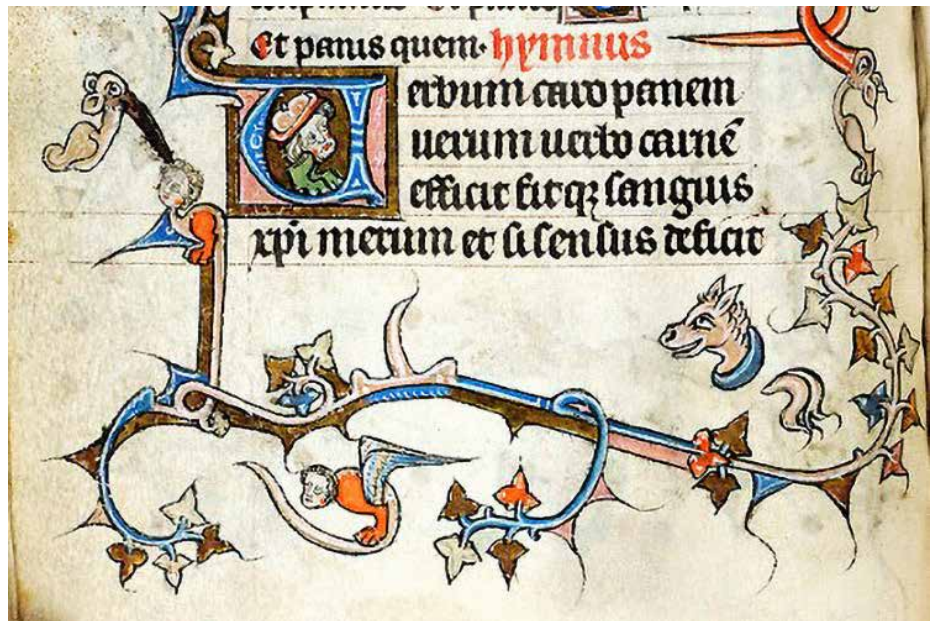 et panis quem· hymnus
Verbum caro panem
uerum uerbo carnē
efficit fitqȝ sanguis
xpi merum et si sensus deficit